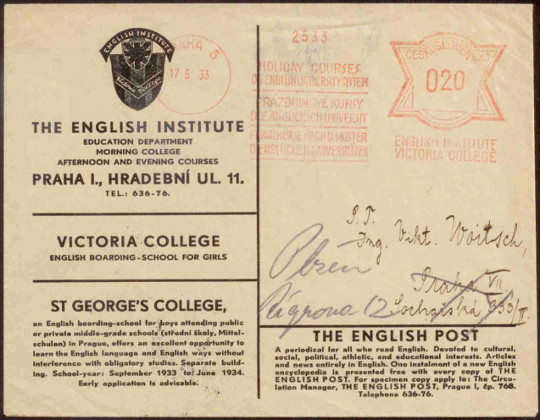 ENGLISH INSTITUTE
Victoria College
PRAHA 3
17 5 33
2533
HOLIDAY COURSES
ON ENGLISH UNIVERSITY SYSTEM
PRÁZDNINOVÉ KURSY
DLE ANGLICKÝCH UNIVERSIT
NACH D. MUSTER
DER ENGLISCHEN UNIVERSITÄTEN
ČESKOSLOVENSKO
020
ENGLISH INSTITUTE
VICTORIA COLLEGE
THE ENGLISH INSTITUTE
EDUCATION DEPARTMENT
MORNING COLLEGE
AFTERNOON AND EVENING COURSES
PRAHA I., HRADEBNÍ UL. 11.
TEL.: 636-76.
VICTORIA COLLEGE
ENGLISH BOARDING-SCHOOL FOR GIRLS
ST GEORGE'S COLLEGE,
an English boarding-school for boys attending public
or private middle-grade schools (střední školy, Mittel-
schulen) in Prague, offers an excellent opportunity to
learn the English language and English ways without
interference with obligatory studies. Separate build-
ing. School-year: September 1933 to June 1934.
Early application is advisable.
P. T.
Ing. Vikt. Woitsch,
Plzeň
Praha VII
Riegrova 12
333/II.
THE ENGLISH POST
A periodical for all who read English. Devoted to cultural,
social, political, athletic, and educational interests. Articles
and news entirely in English. One instalment of a new English
encyclopedia is presented free with every copy of THE
ENGLISH POST. For specimen copy apply to: The Circu-
lation Manager, THE ENGLISH POST, Prague I., čp. 768.
Telephone 636-76.